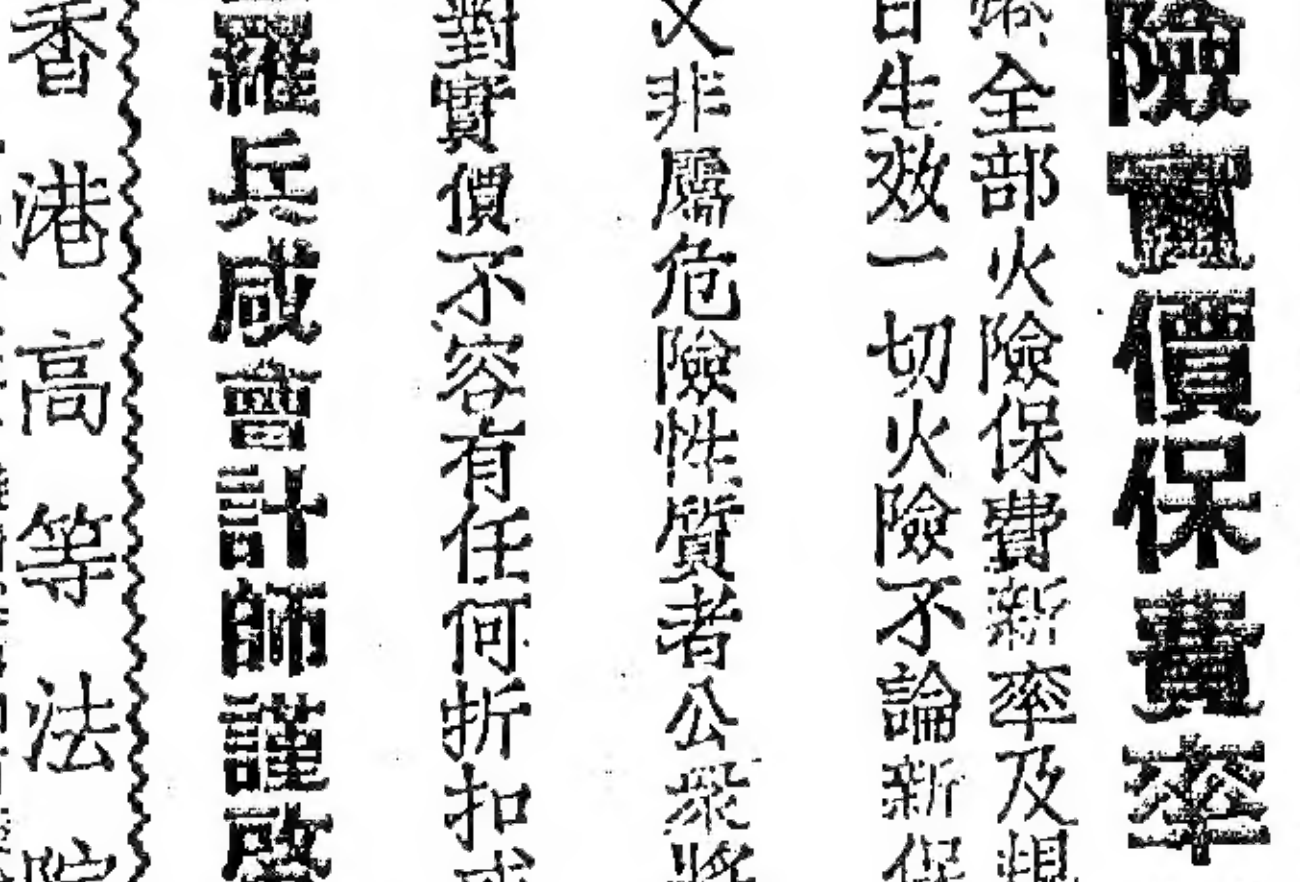 險實價保費率
全部火險保費新率及規
日生效一切火險不論新保
又非屬危險性質者公眾將
對實價不容有任何折扣或
羅兵咸會計師謹啓
香港高等法院